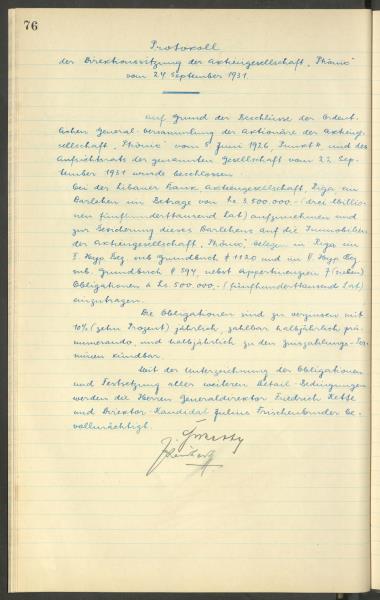 76
Protokoll
der Direktionssitzung der Aktiengesellschaft „Phönix“
vom 24 September 1931.
Auf Grund der Beschlüsse der Ordent-
lichen General-Versammlung der Aktionäre der Aktienge-
sellschaft „Phönix“ vom 5 Juni 1926, Punkt 4 und des
Aufsichtsrats der genannten Gesellschaft vom 22 Sep-
tember 1931 wurde beschlossen
bei der Libauer Bank, Aktiengesellschaft, Riga ein
Darlehen im Betrage von Ls. 3.500.000.- (drei Millio-
nen fünfhunderttausend Lat) aufzunehmen und
zur Sicherung dieses Darlehens auf die Immobilien
der Aktiengesellschaft „Phönix“ belegen in Riga im
Hyp. Bez. sub Grundbuch # 1120 und im II Hyp. Bez.
sub. Grundbuch # 894, nebst Appertinenzien 7 (sieben)
Obligationen à Ls. 500.000.- (fünfhunderttausend Lat)
einzutragen.
Die Obligationen sind zu verzinsen mit
10% (zehn Prozent) jährlich, zahlbar halbjährlich prä-
numerando, und halbjährlich zu den Zinszahlungs-Ter-
minen kündbar.
Mit der Unterzeichnung der Obligationen
und Festsetzung aller weiteren Detail-Bedingungen
werden die Herren Generaldirektor Friedrich
und Direktor-Kandidat Julius Frischenbruder be-
vollmächtigt.